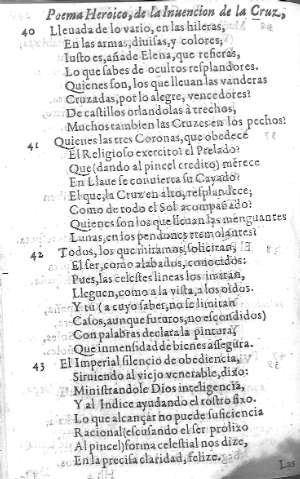 Poema Heroico, de la Inuencion de la Cruz,
40 Lleuada de lo vario, en las hileras,
En las armas, diuisas, y colores;
Iusto es, añade Elena, que refieras,
Lo que sabes de ocultos resplandores.
Quienes son, los que lleuan las vanderas
Cruzadas, por lo alegre, vencedores?
De castillos orlandolas à trechos,
Muchos tambien las Cruzes en los pechos?
41 Quienes las tres Coronas, que obedece
El Religioso exercito? el Prelado?
Que (dando al pincel credito) merece
En Llaue se conuierta su Cayado?
El que, la Cruz en alto, resplandece,
Como de todo el Sol acompañado?
Quienes son los que lleuan las menguantes
Lunas, en los pendones tremolantes?
42 Todos, los que miramos, solicitan,
El ser, como alabados, conocidos:
Pues, las celestes lineas los imitan,
Lleguen, como a la vista, a los oidos.
Y tù (a cuyo saber, no se limitan
Casos, aunque futuros, no escondidos)
Con palabras declara la pintura,
Que inmensidad de bienes assegura.
43 El Imperial silencio de obediencia,
Siruiendo al viejo venerable, dixo:
Ministrandole Dios inteligencia,
Y al Indice ayudando el rostro fixo.
Lo que alcançar no puede suficiencia
Racional (escusando el ser prolixo
Al pincel) forma celestial nos dize,
En la precisa claridad, felize.
Las